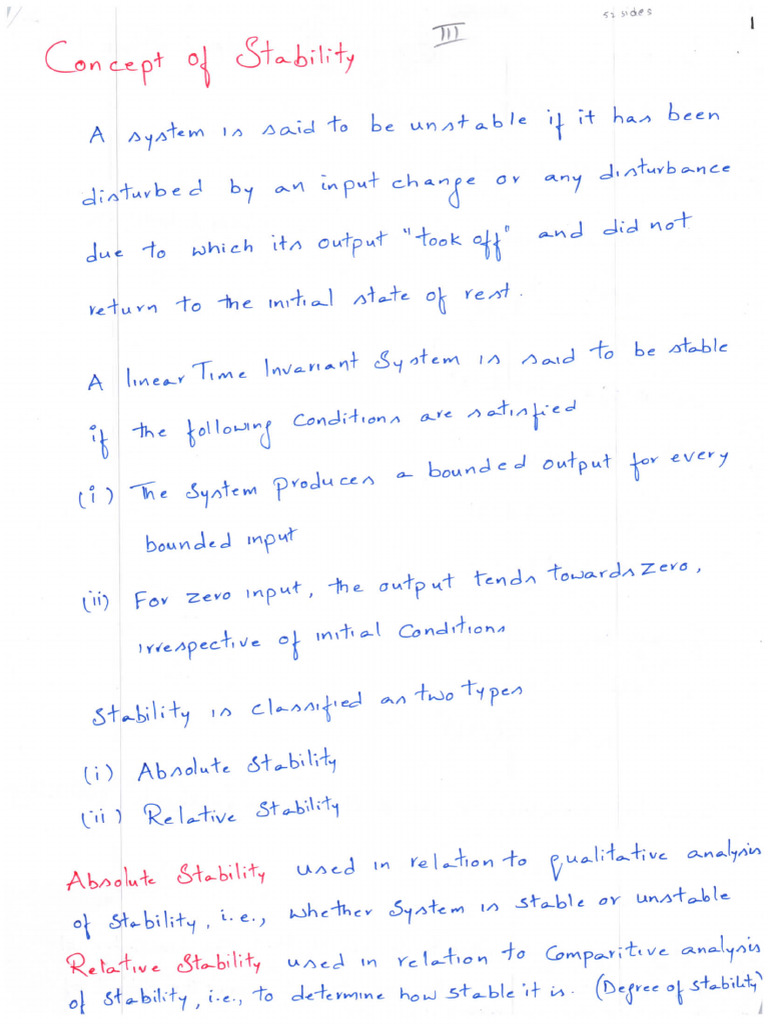 52 sides
III
1
Concept of Stability
A system is said to be unstable if it has been
disturbed by an input change or any disturbance
due to which its output "took off" and did not
return to the initial state of rest.
A linear Time Invariant System is said to be stable
if the following conditions are satisfied
(i) The System produces a bounded output for every
bounded input
(ii) For zero input, the output tends towards zero,
irrespective of initial Conditions
Stability is classified as two types
(i) Absolute Stability
(ii) Relative Stability
Absolute Stability used in relation to qualitative analysis
of stability, i.e., whether System is stable or unstable
Relative Stability used in relation to Comparitive analysis
of stability, i.e., to determine how stable it is. (Degree of stability)